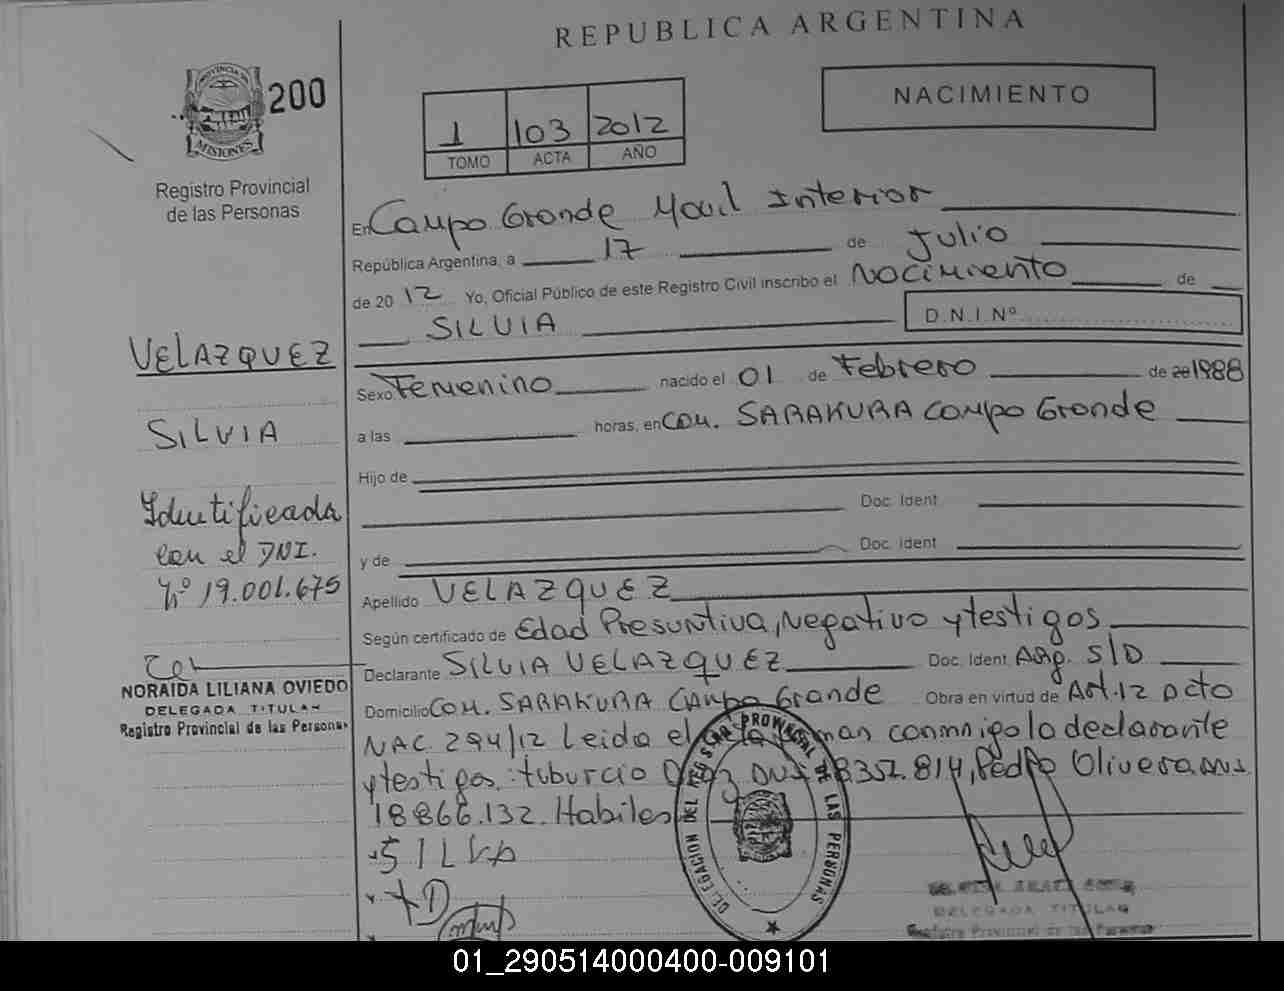 REPUBLICA ARGENTINA
PROVINCIA DE
MISIONES
200
Registro Provincial
de las Personas
1 103 2012
TOMO ACTA AÑO
NACIMIENTO
En Campo Grande Movil Interior
República Argentina, a 17 de Julio
de 20 12 Yo, Oficial Público de este Registro Civil inscribo el Nacimiento de
SILVIA D.N.I Nº
VELAZQUEZ
SILVIA
Identificada
con el DNI.
Nº 19.001.675
NORAIDA LILIANA OVIEDO
DELEGADA TITULAR
Registro Provincial de las Personas
Sexo Femenino nacido el 01 de Febrero de 20 1988
a las horas, en Com. SARAKURA Campo Grande
Hijo de
Doc. Ident
y de Doc. Ident
Apellido VELAZQUEZ
Según certificado de Edad Presuntiva, Negativo y testigos
Declarante SILVIA VELAZQUEZ Doc. Ident. Arg. S/D
Domicilio Com. SARAKURA Campo Grande Obra en virtud de Art. 12 Dcto
NAC. 294/12 Leida el acta firman conmigo la declarante
y testigos: tiburcio DNI 18352.814, Pedro Olivera DNI
18866.132. Habiles
SILVA
DELEGACION DEL REGISTRO PROVINCIAL DE LAS PERSONAS
DELEGADA TITULAR
Registro Provincial de las Personas
01_290514000400-009101